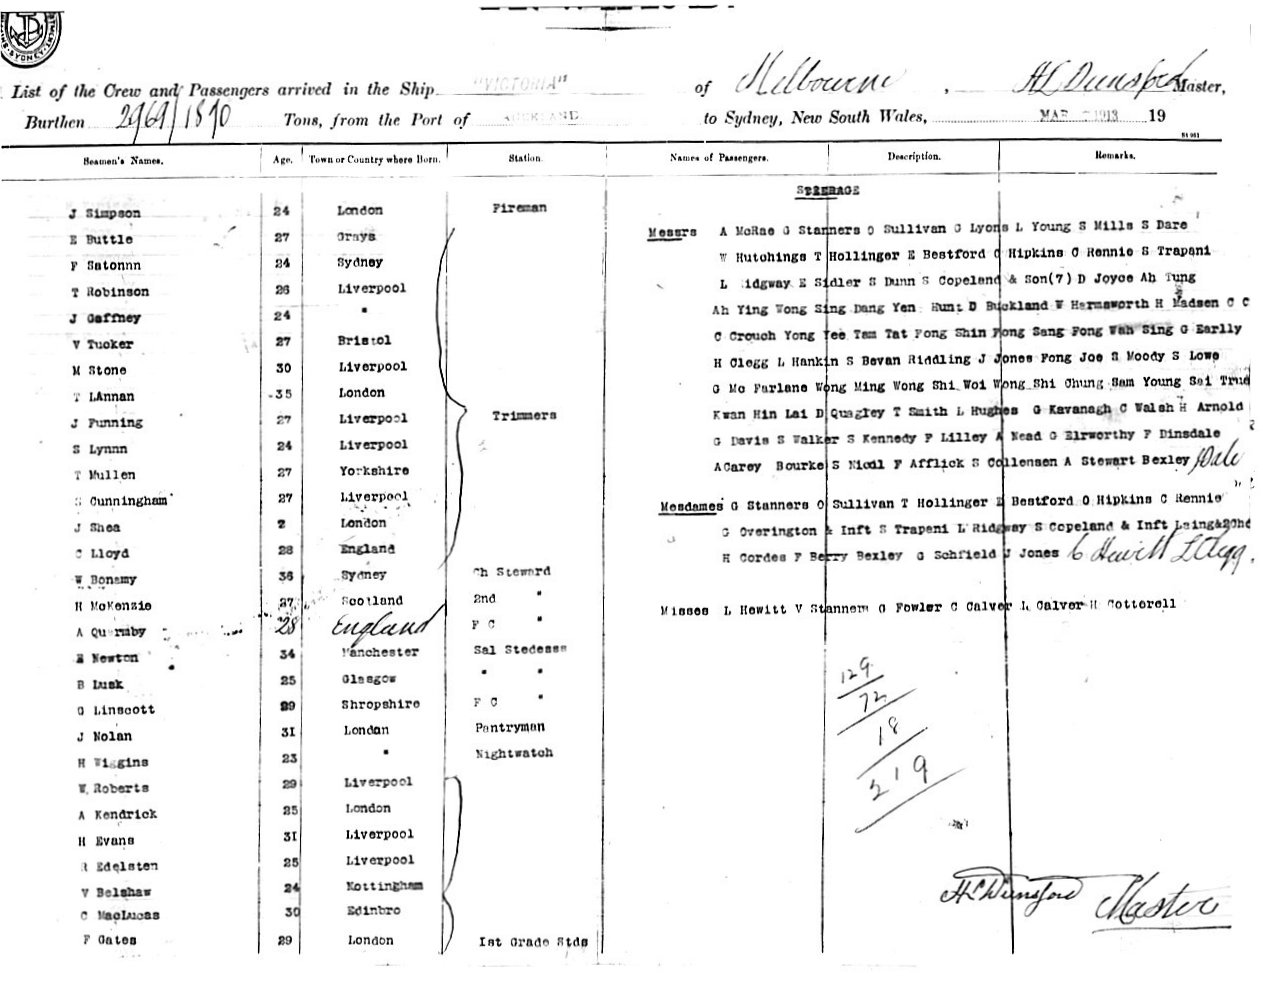 SYDNEY
List of the Crew and Passengers arrived in the Ship "VICTORIA" of Melbourne, H C Dunsford Master,
Burthen 2969/1870 Tons, from the Port of AUCKLAND to Sydney, New South Wales, MAR 1913 19
Seamen's Names. Age. Town or Country where Born. Station Names of Passengers. Description. Remarks.
J Simpson 24 London Fireman
E Buttle 27 Grays
F Satonnn 24 Sydney
T Robinson 26 Liverpool
J Gaffney 24 "
V Tucker 27 Bristol
M Stone 30 Liverpool
T LAnnan 35 London
J Funning 27 Liverpool Trimmers
S Lynnn 24 Liverpool
T Mullen 27 Yorkshire
S Cunningham 27 Liverpool
J Shea 2 London
C Lloyd 28 England
W Bonamy 36 Sydney Ch Steward
H McKenzie 27 Scotland 2nd "
A Qu rmby 28 England F C "
E Newton 34 Manchester Sal Stedesss
B Lusk 25 Glasgow " "
G Linscott 29 Shropshire F C "
J Nolan 31 London Pantryman
H Wiggins 23 " Nightwatch
W Roberts 29 Liverpool
A Kendrick 25 London
H Evans 31 Liverpool
R Edelsten 25 Liverpool
V Belshaw 24 Nottingham
C MacLucas 30 Edinbro
F Gates 29 London 1st Grade Stds
STEERAGE
Messrs A McRae G Stanners O Sullivan G Lyons L Young S Mills S Dare
W Hutchings T Hollinger E Bestford O Hipkins C Rennie S Trapani
L idgway E Sidler S Dunn S Copeland & Son(7) D Joyce Ah Tung
Ah Ying Wong Sing Dang Yen Hunt D Buckland W Harmsworth H Madsen C C
C Crouch Yong Yee Tam Tat Fong Shin Fong Sang Fong Wah Sing G Earlly
H Clegg L Hankin S Bevan Riddling J Jones Fong Joe S Moody S Lowe
G Mc Farlane Wong Ming Wong Shi Woi Wong Shi Chung Sam Young Sai True
Kwan Hin Lai D Quagley T Smith L Hughes G Kavanagh C Walsh H Arnold
G Davis S Walker S Kennedy F Lilley A Nead G Elrworthy F Dinsdale
A Carey Bourke S Nicol F Afflick S Collensen A Stewart Bexley J Dale
Mesdames G Stanners O Sullivan T Hollinger E Bestford O Hipkins C Rennie
G Overington & Inft S Trapani L Ridgway S Copeland & Inft Laing&2Chd
H Cordes F Berry Bexley G Schfield J Jones C Hewitt L Clegg.
Misses L Hewitt V Stanners G Fowler C Calver L Calver H Cotterell
129
72
18
219
H C Dunsford Master